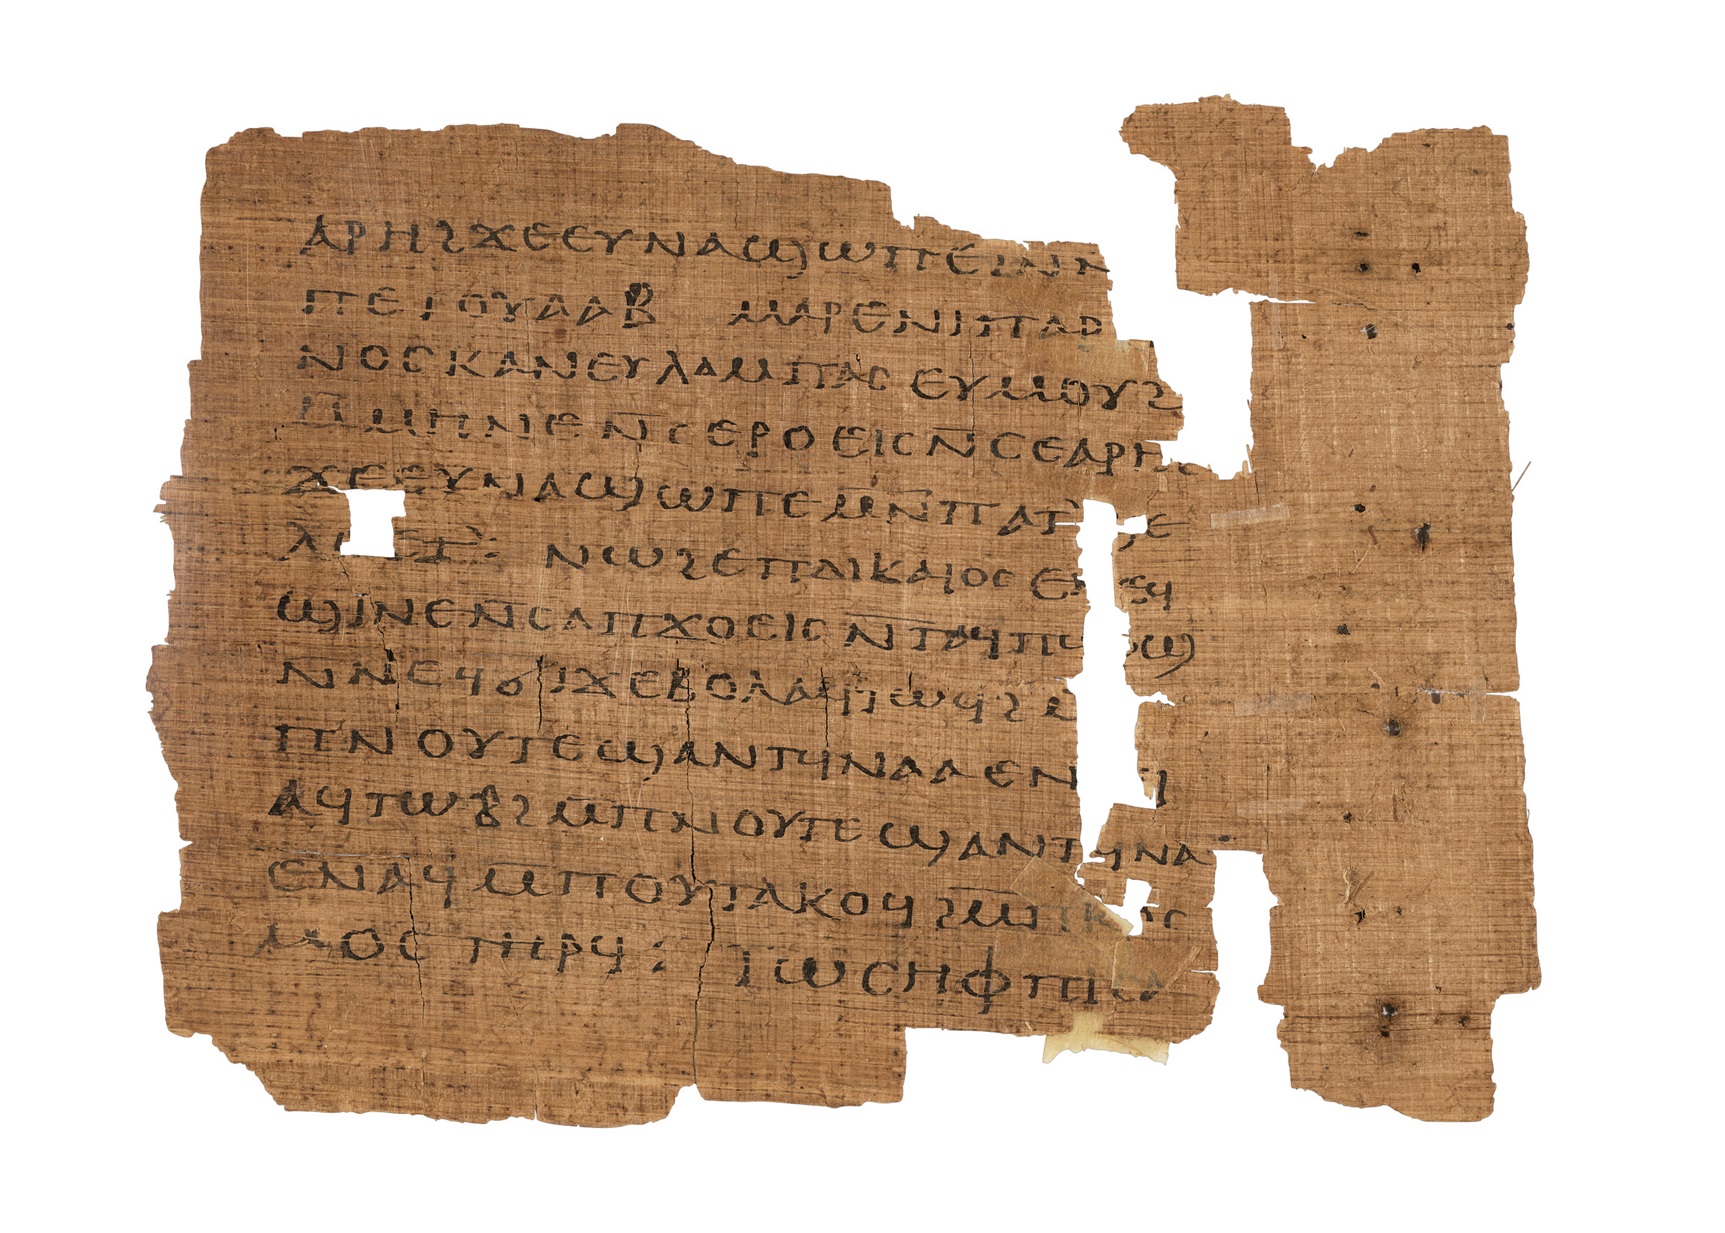 ⲁⲣⲏϩϫⲉⲉⲩⲛⲁϣⲱⲡⲉⲓⲛⲛ
ⲡⲉⲧⲟⲩⲁⲁⲃ ⲙⲁⲣⲉⲛⲓⲡⲁⲣ
ⲛⲟⲥⲕⲁⲛⲉⲩⲗⲁⲙⲡⲁⲥⲉⲩⲙⲟⲩϩ
ⲙⲡⲛⲉⲛ̄ⲥⲉⲣⲟⲉⲓⲥⲛ̄ⲥⲉⲁⲣⲏϩ
ϫⲉⲉⲩⲛⲁϣⲱⲡⲉⲙⲛ̄ⲡⲁⲧϣⲉ
ⲗⲉⲉⲧ: ⲛⲱϩⲉⲡⲇⲓⲕⲁⲓⲟⲥ
ϣⲓⲛⲉⲛ̄ⲥⲁⲡϫⲟⲉⲓⲥⲛ̄ⲧⲁϥⲡⲱⲣϣ
ⲛ̄ⲛⲉϥϭⲓϫⲉⲃⲟⲗⲁϥⲧⲱϥϩ
ⲡⲛⲟⲩⲧⲉϣⲁⲛⲧϥⲛⲁⲁⲉⲛ
ⲁϥⲧⲱⲃϩⲙ̄ⲡⲛⲟⲩⲧⲉϣⲁⲛⲧϥⲛⲁ
ⲉⲛⲁϥⲙ̄ⲡⲟⲩⲧⲁⲕⲟϥϩⲙ̄ⲡⲕⲟⲥ
ⲙⲟⲥⲧⲏⲣϥ: ⲓⲱⲥⲏⲫ